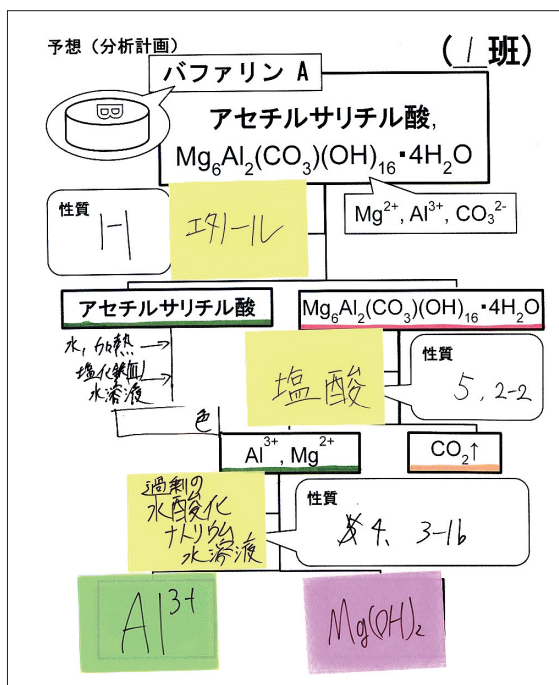 予想（分析計画）
（1班）
バファリン A
アセチルサリチル酸,
Mg₆Al₂(CO₃)(OH)₁₆・4H₂O
Mg²⁺, Al³⁺, CO₃²⁻
性質
1-1
エタノール
アセチルサリチル酸
Mg₆Al₂(CO₃)(OH)₁₆・4H₂O
水, 加熱→
塩化鉄(III)→
水溶液
色
塩酸
性質
5, 2-2
Al³⁺, Mg²⁺
CO₂↑
過剰の
水酸化
ナトリウム
水溶液
性質
4、3-1b
Al³⁺
Mg(OH)₂